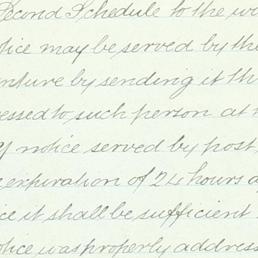 Second Schedule to the wi
tice may be served by the
enture by sending it th
ressed to such person at h
y notice served by post,
expiration of 24 hours a
ice it shall be sufficient
otice was properly address